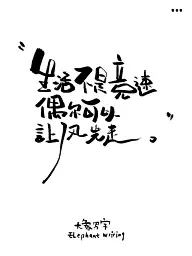 "生活不是竞速
偶尔可以
讓风先走。"
大象写字
Elephant writing